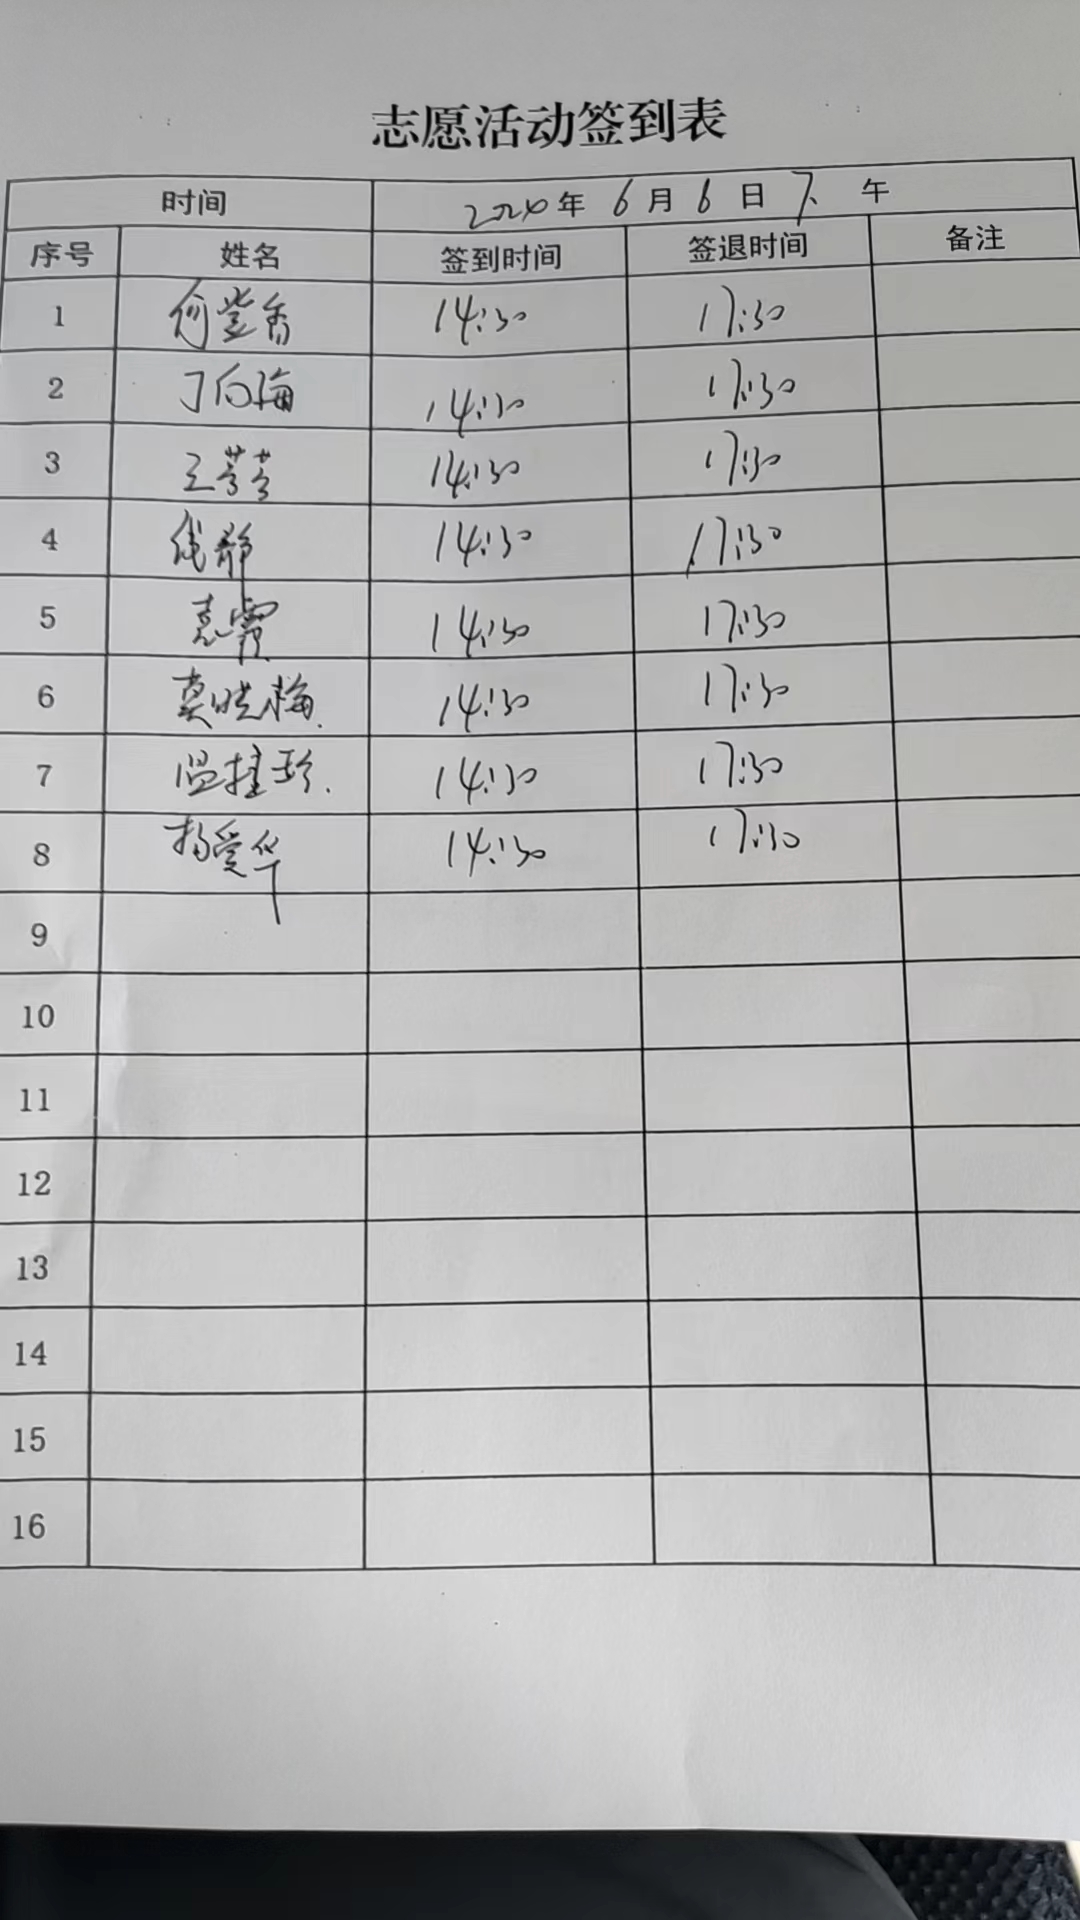 志愿活动签到表
时间 年 6月6日下午
序号 姓名 签到时间 签退时间 备注
1 何登香 14:30 17:30
2 丁向梅 14:30 17:30
3 王芳芳 14:30 17:30
4 钱静 14:30 17:30
5 袁霞 14:30 17:30
6 莫晓梅 14:30 17:30
7 温桂珍 14:30 17:30
8 杨爱华 14:30 17:30
9
10
11
12
13
14
15
16